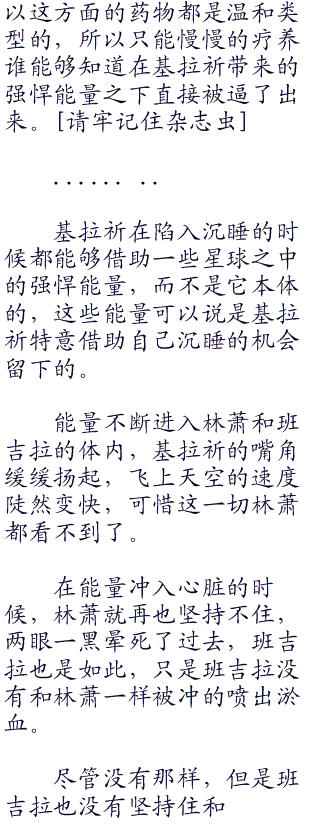 以这方面的药物都是温和类
型的，所以只能慢慢的疗养
谁能够知道在基拉祈带来的
强悍能量之下直接被逼了出
来。[请牢记住杂志虫]
...... ..
基拉祈在陷入沉睡的时
候都能够借助一些星球之中
的强悍能量，而不是它本体
的，这些能量可以说是基拉
祈特意借助自己沉睡的机会
留下的。
能量不断进入林萧和班
吉拉的体内，基拉祈的嘴角
缓缓扬起，飞上天空的速度
陡然变快，可惜这一切林萧
都看不到了。
在能量冲入心脏的时
候，林萧就再也坚持不住，
两眼一黑晕死了过去，班吉
拉也是如此，只是班吉拉没
有和林萧一样被冲的喷出淤
血。
尽管没有那样，但是班
吉拉也没有坚持住和